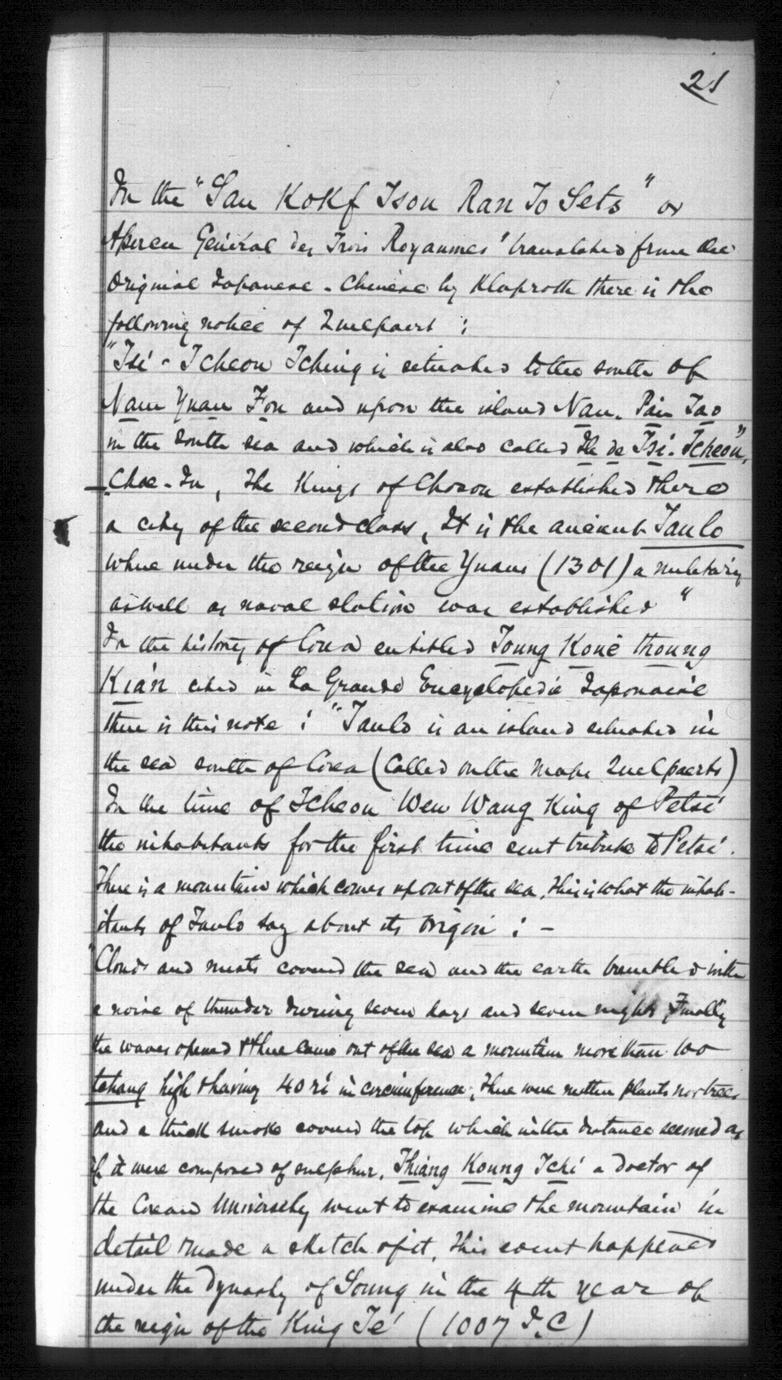 21
In the "San Kokf Tsou Ran To Sets" or
Aperçu Général des Trois Royaumes' translated from the
Original Japanese - Chinese by Klaproth there is the
following notice of Quelpaert :
"Tsi - Tcheou Tching is situated to the south of
Nam Yuan Fou and upon the island Nan. Pan Tao
in the South sea and which is also called Ile de Tsi. Tcheou",
Chae-Ju, The Kings of Choson established there
a city of the second class, It is the ancient Taulo
where under the reign of the Yuans (1301) a military
as well as naval station was established "
In the history of Corea entitled Toung Koue thoung
Kian cited in La Grande Encyclopedie Japonaise
there is this note : "Taulo is an island situated in
the sea south of Corea (Called on the maps Quelpaerts)
In the time of Tcheou Wen Wang King of Petsi
the inhabitants for the first time sent tribute to Petsi.
There is a mountain which comes up out of the sea, this is what the inhab-
itants of Taulo say about its origin : -
"Clouds and mists covered the sea and the earth trembled with
a noise of thunder during seven days and seven nights Finally
the waves opened & there came out of the sea a mountain more than 100
tchang high & having 40 ri in circumference; There were neither plants nor trees
and a thick smoke covered the top which in the distance seemed as
if it were composed of sulphur. Thiang Koung Tchi a doctor of
the Corean University went to examine the mountain in
detail & made a sketch of it, this event happened
under the Dynasty of Soung in the 4th year of
the reign of the King Te (1007 J.C)